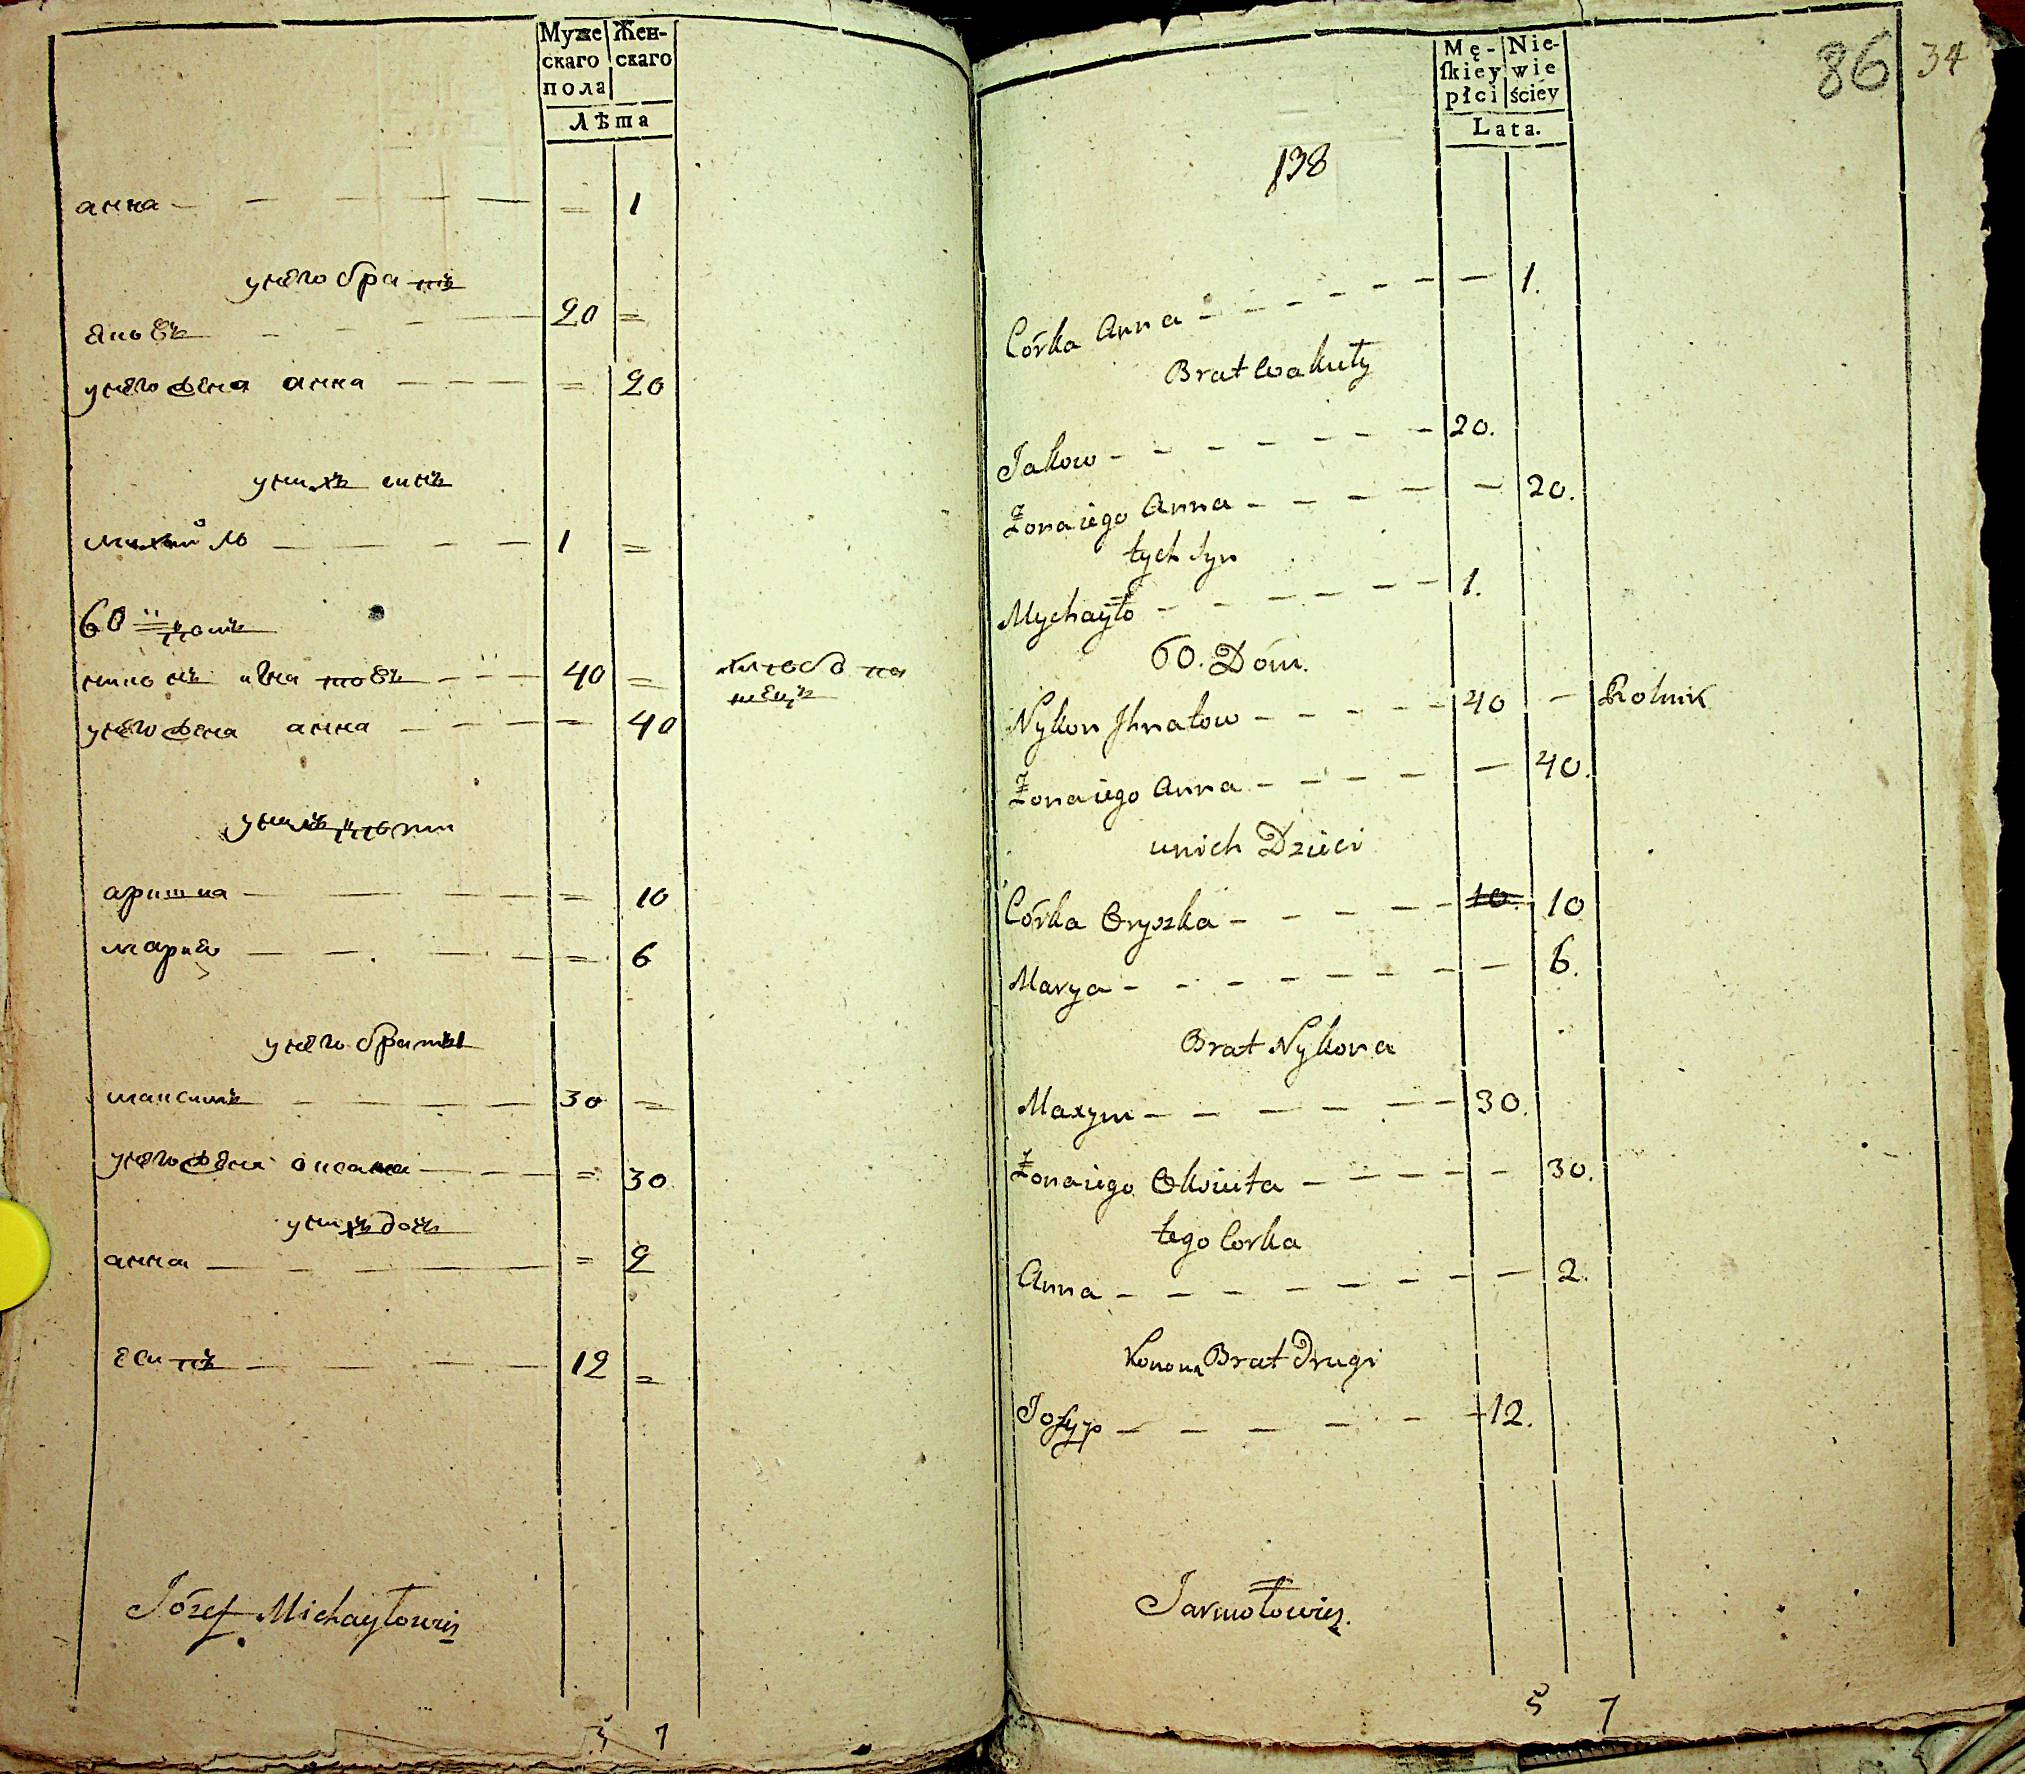 Муже Жен-
скаго скаго
пола
Лѣта
анна — — — — — = 1
унего братъ
яковъ — — — — 20 =
унего жена анна — — — = 20
унихъ синъ
михайло — — — — 1 =
60 й домъ
никонъ игнатовъ — — — 40 = хлѣбопа
шецъ
унего жена анна — — — 40
унихъ дѣти
аришка — — — — = 10
мария — — — — = 6
унего браты
максимъ — — — — 30 =
унего жена — — — = 30
унихъ дочь
анна — — — — = 2
есипъ — — — — 12 =
Józef Michayłowicz
5 7
86 34
Mę- Nie-
ſkiey wie
płci ściey
Lata.
138
Córka Anna — — — — — — 1.
Brat Wakuły
Jakow — — — — — — 20.
Żona iego Anna — — — — — 20.
tych Syn
Mychayło — — — — — — 1.
60. Dóm.
Nykon Ihnatow — — — — — 40 — Rolnik
Żona iego Anna — — — — — 40.
unich Dzieci
Córka Oryszka — — — — — 10. 10
Marya — — — — — — — — 6.
Brat Nykona
Maxym — — — — — — 30.
Żona iego — — — — — 30.
tego Corka
Anna — — — — — — — — 2.
Konona Brat Drugi
Josyp — — — — — — 12.
Jarmołowicz.
5 7